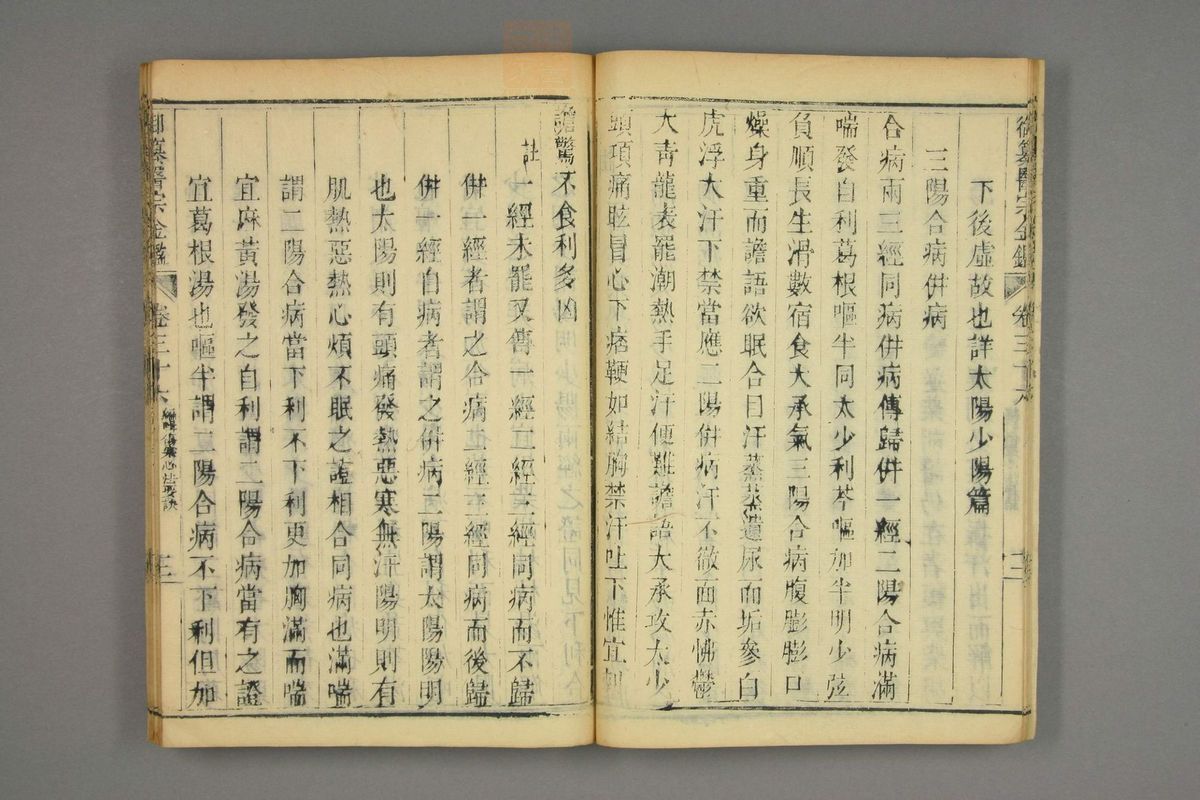 下後虛故也詳太陽少陽篇
三陽合病併病
合病兩三經同病併病傳歸併一經二陽合病滿
喘發自利葛根嘔半同太少利芩嘔加半明少弦
負順長生滑數宿食大承氣三陽合病腹膨膨口
燥身重而譫語欲眠合目汗蒸蒸遺尿而垢參白
虎浮大汗下禁當應二陽併病汗不徹面赤怫鬱
大青龍表罷潮熱手足汗便難譫語大承攻太少
頭項痛眩冒心下痞鞕如結胸禁汗吐下惟宜刺
譫驚不食利多凶
註一經未罷又傳一經二經三經同病而不歸
併一經者謂之合病也經二經同病而後歸
併一經自病者謂之併病二陽謂太陽陽明
也太陽則有頭痛發熱惡寒無汗陽明則有
肌熱惡熱心煩不眠之證相合同病也滿喘
謂二陽合病當下利不下利更加胸滿而喘
宜麻黃湯發之自利謂二陽合病當有之證
宜葛根湯也嘔半謂二陽合病不下利但加
御纂醫宗金鑑 卷三十六 編傷寒心法要訣 三